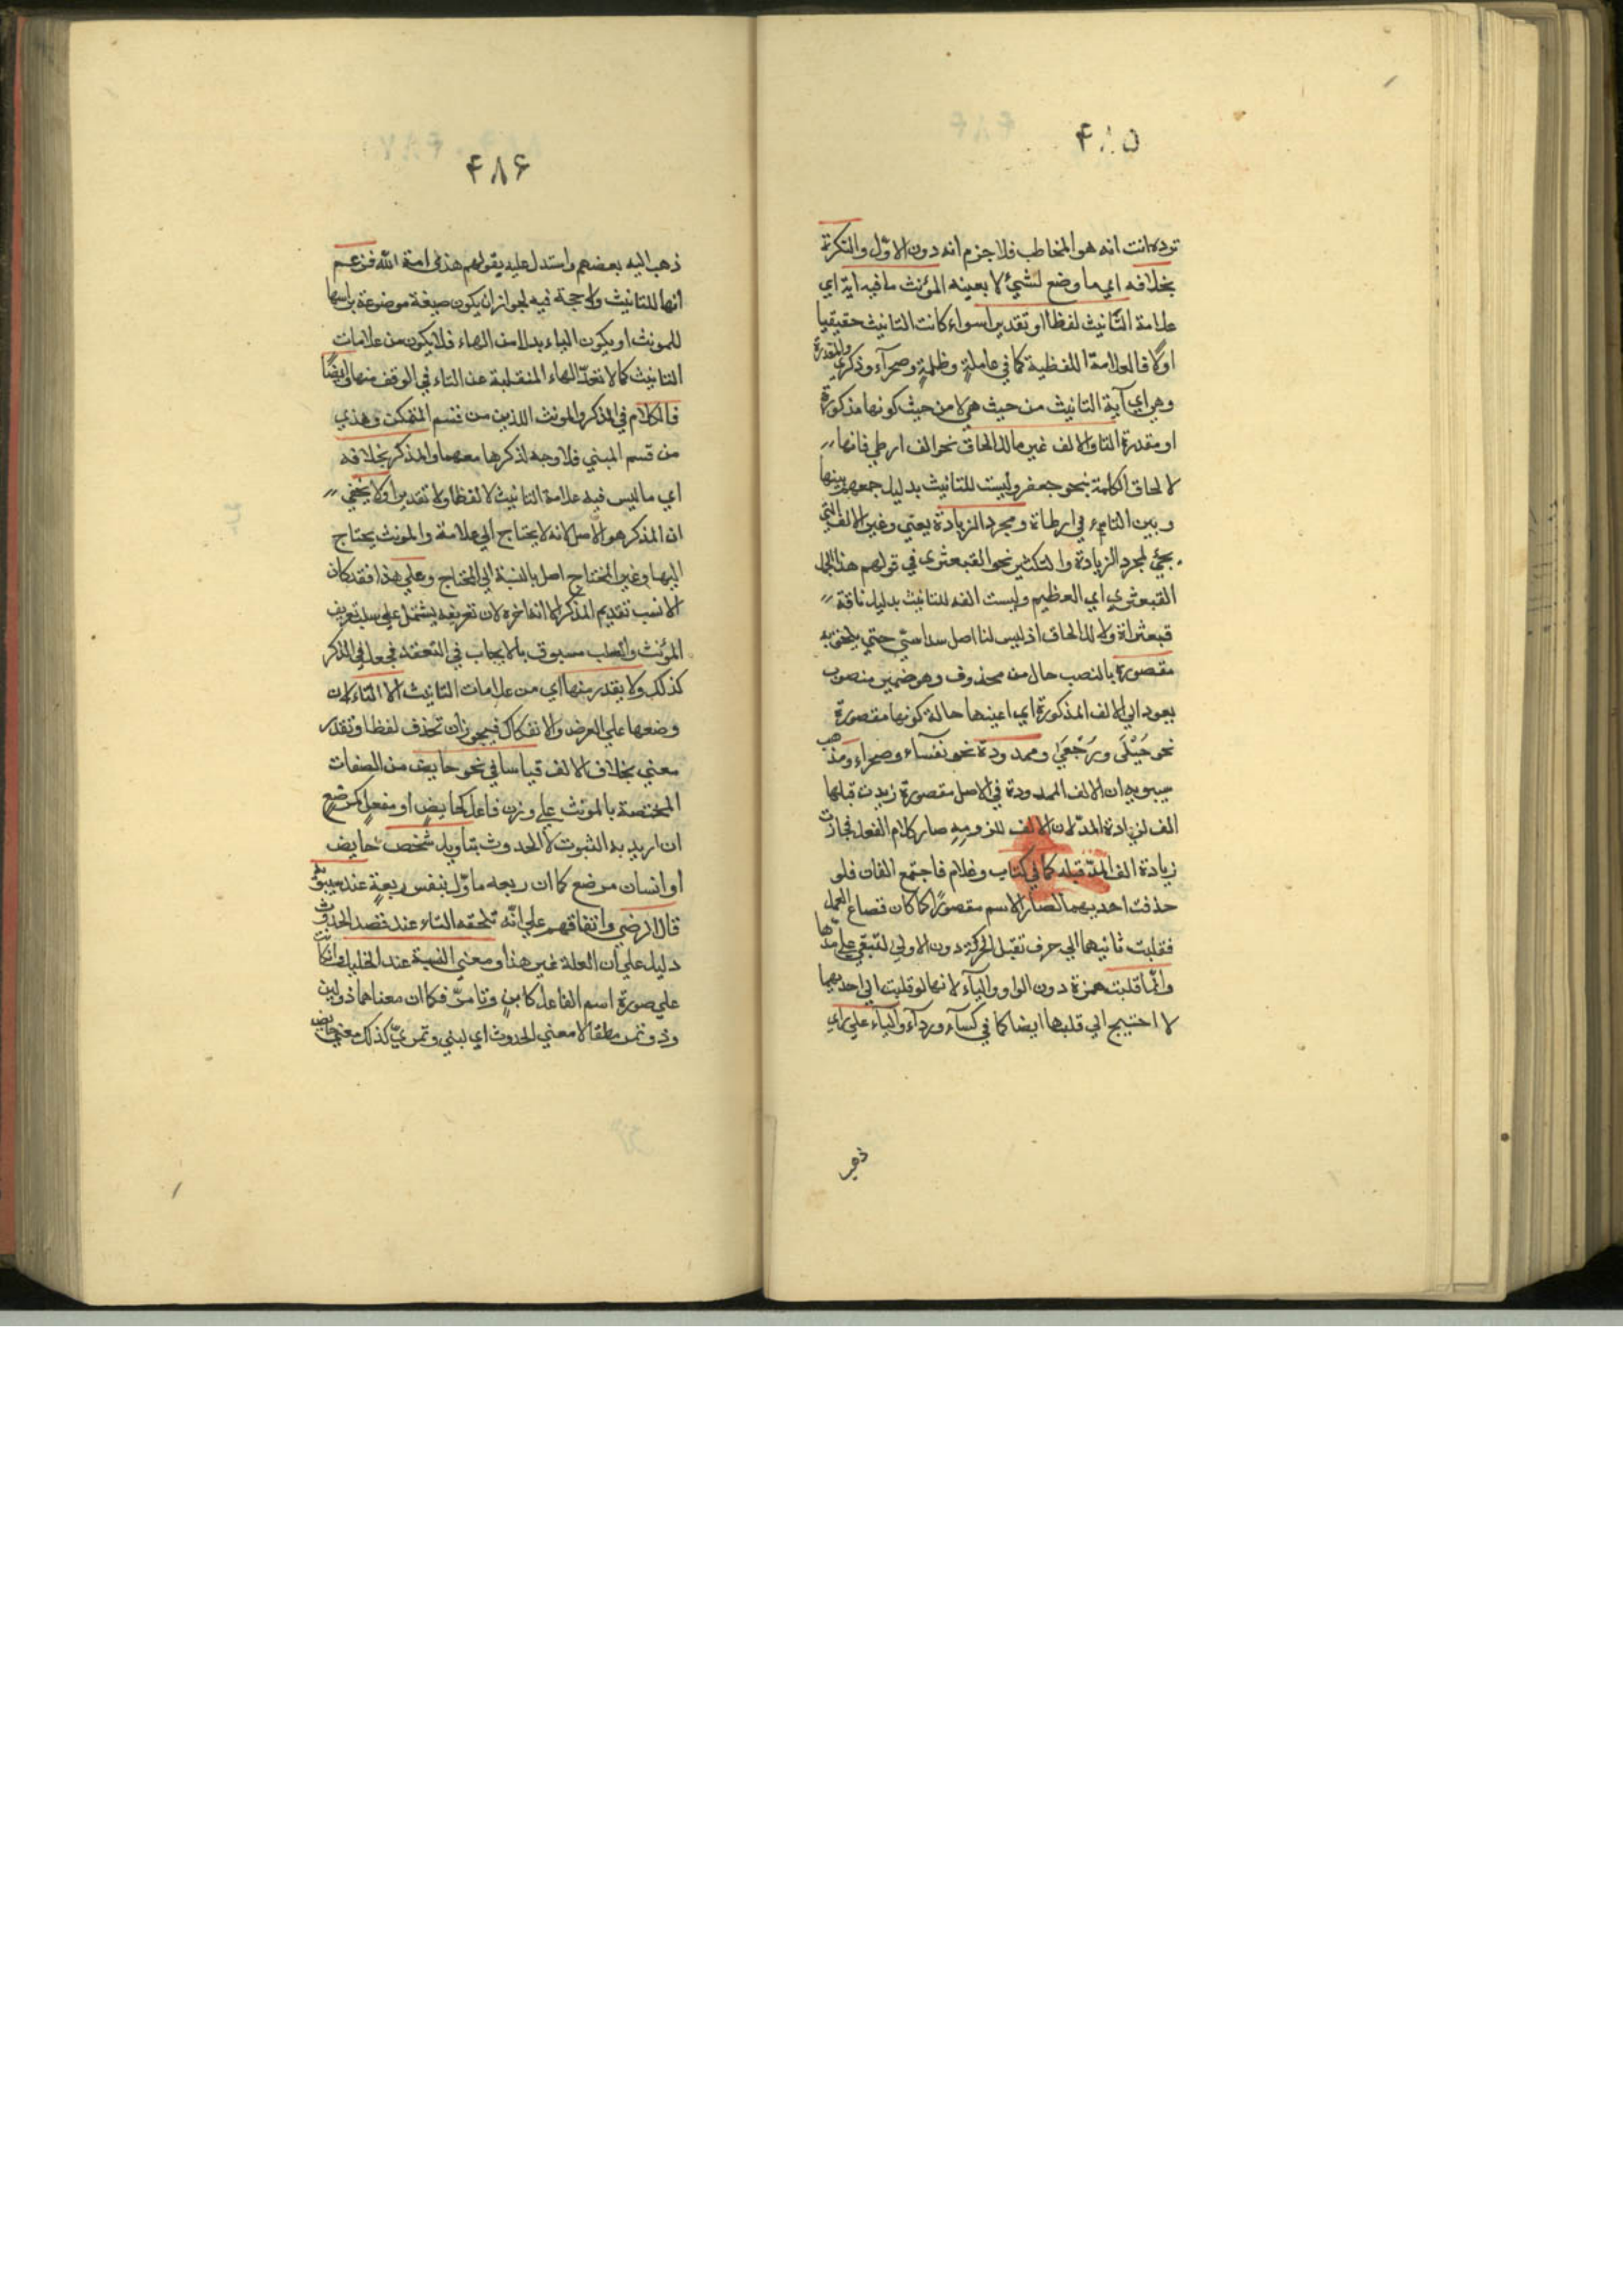 ۴۸۵
توده انت انه هو المخاطب فلا جزم انه دون الاوّل والنكرة
بخلافه اي ما وضع لشيئ لا بعينه المؤنث ما فيه اية اي
علامة التأنيث لفظا او تقديرا سواء كانت التانيث حقيقيا
اولا فالعلامة اللفظية كما في عاملةٍ وظلمةٍ وصحرآء وذكري والمقدرة
وهي اي آية التانيث من حيث هي لا من حيث كونها مذكورة
او مقدرة التا والالف غير ما للالحاق نحو الف ارطي فانها
لالحاق الكلمة بنحو جعفر وليست للتانيث بدليل جمعهم بينها
وبين التاء في ارطاة ومجرد الزيادة يعني وغير الالف التي
يجئ لمجرد الزيادة والتكثير نحو القبعثرى في قولهم هذا الجمل
القبعثري اي العظيم وليست الفه للتانيث بدليل ناقة
قبعثراة ولا للالحاق اذ ليس لنا اصل سداسي حتي يلحق به
مقصورة بالنصب حال من محذوف وهو ضمير منصوب
يعود الي الالف المذكورة اي اعينها حالة كونها مقصورة
نحو حُبْلَى ورُجْعَي وممدودة نحو نفسآء وصحراء ومذهب
سيبويه ان الالف الممدودة في الاصل مقصورة زيدت قبلها
الف لزيادة المدّ لان الالف للزومه صار كلام الفعل فجازت
زيادة الف المدّ قبله كما في كتاب وغلام فاجتمع الفان فلو
حذفت احديهما لصار الاسم مقصورًا كما كان فضاع العمل
فقلبت ثانيهما الي حرف تقبل الحركة دون الاولي لتبقي علي مدّها
وانّما قلبت همزة دون الواو والياء لانها لو قلبت الي احديهما
لا احتيج الي قلبها ايضا كما في كسآء وردآء والياء علي راي
ذهب
۴۸۶
ذهب اليه بعضهم واستدل عليه بقولهم هذي امة الله فزعم
انها للتانيث ولا حجة فيه لجواز ان يكون صيغة موضوعة براسها
للمونث او يكون الياء بدلا من الهاء فلا يكون من علامات
التانيث كما لا تعدّ الهاء المنقلبة عن التاء في الوقف منها وايضًا
فالكلام في المذكر والمونث اللذين من قسم المتمكن وهذي
من قسم المبني فلا وجه لذكرها معهما والمذكر بخلافه
اي ما ليس فيه علامة التانيث لا لفظا ولا تقديرا ولا يخفي
ان المذكر هو الاصل لانه لا يحتاج الي علامة والمونث يحتاج
اليها وغير المحتاج اصل بالنسبة الي المحتاج وعلي هذا فقد كان
الانسب تقديم المذكر الا انه اخره لان تعريفه يشتمل علي سلب تعريف
المؤنث والسلب مسبوق بالايجاب في التعقل فجعل في الذكر
كذلك ولا يقدر منها اي من علامات التانيث الا التاء لان
وضعها علي العرض والانفكاك فيجوز ان تحذف لفظا وتقدر
معني بخلاف الالف قياسا في نحو حايض من الصفات
المختصة بالمونث علي وزن فاعل كحايضٍ او مفعلٍ كمرضعٍ
ان اريد به الثبوت لا الحدوث بتاويل شخص حايض
او انسان مرضع كما ان ربعه ماوّل بنفس ربعةٍ عند سيبويه
قال الرضي واتفاقهم علي انّه تلحقه التاء عند قصد الحدوث
دليل علي ان العلة غير هذا و معني النسبة عند الخليل فانّ كانت
علي صورة اسم الفاعل كلابنٍ وتامرٍ فكما ان معناهما ذو لبن
وذو تمر مطلقا لا معني الحدوث اي لبنيّ وتمريّ كذلك معني حايض